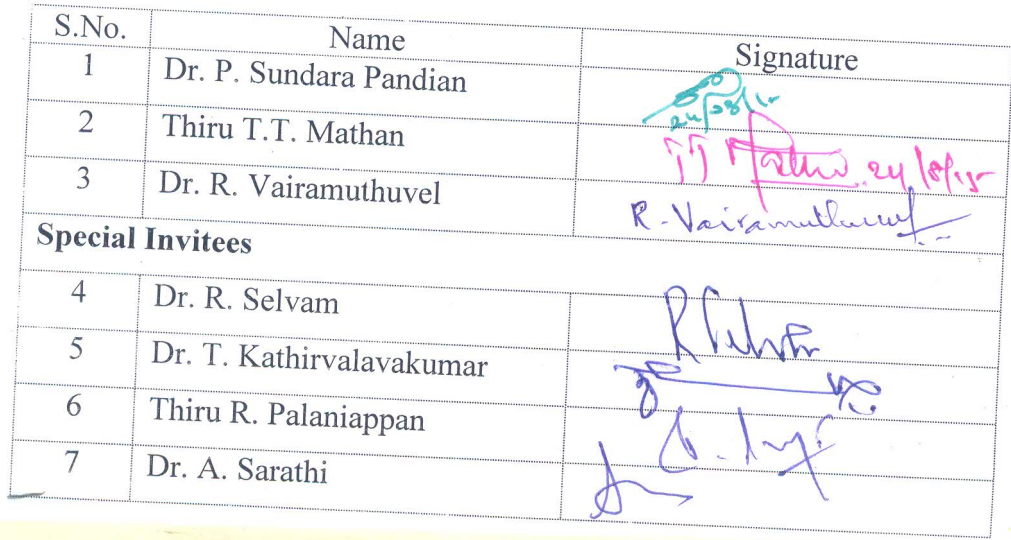 S.No. Name Signature
1 Dr. P. Sundara Pandian 24/08/15
2 Thiru T.T. Mathan TT Mathan 24/8/15
3 Dr. R. Vairamuthuvel R-Vairamuthuvel
Special Invitees
4 Dr. R. Selvam R Selvam
5 Dr. T. Kathirvalavakumar
6 Thiru R. Palaniappan
7 Dr. A. Sarathi